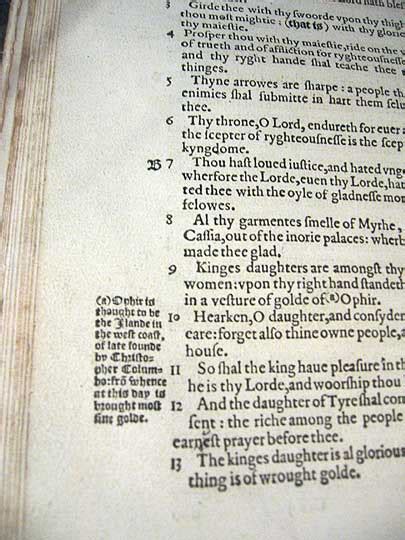 3 Girde thee with thy swoorde vpon thy thigh
thou most mightie: (that is) with thy glorie
thy maiestie.
4 Prosper thou with thy maiestie, ride on the
of trueth and of affliction for ryghteousnesse
and thy ryght hande shal teache thee
thinges.
5 Thyne arrowes are sharpe: a people th
enimies shal submitte in hart them selu
thee.
6 Thy throne, O Lord, endureth for euer a
the scepter of ryghteousnesse is the scep
kyngdome.
B 7 Thou hast loued iustice, and hated vng
wherfore the Lorde, euen thy Lorde, hat
ted thee with the oyle of gladnesse mor
felowes.
8 Al thy garmentes smelle of Myrhe,
Cassia, out of the iuorie palaces: wherb
made thee glad.
9 Kinges daughters are amongst thy
women: vpon thy right hand standeth
in a vesture of golde of (a) Ophir.
(a) Ophir is
thought to be
the Ilande in
the west coast,
of late founde
by Christo-
pher Colum-
bo: frō whence
at this day is
brought most
fine golde.
10 Hearken, O daughter, and consyder
eare: forget also thine owne people, a
house.
11 So shal the king haue pleasure in th
he is thy Lorde, and woorship thou
12 And the daughter of Tyre shal com
sent: the riche among the people
earnest prayer before thee.
13 The kinges daughter is al glorious
thing is of wrought golde.